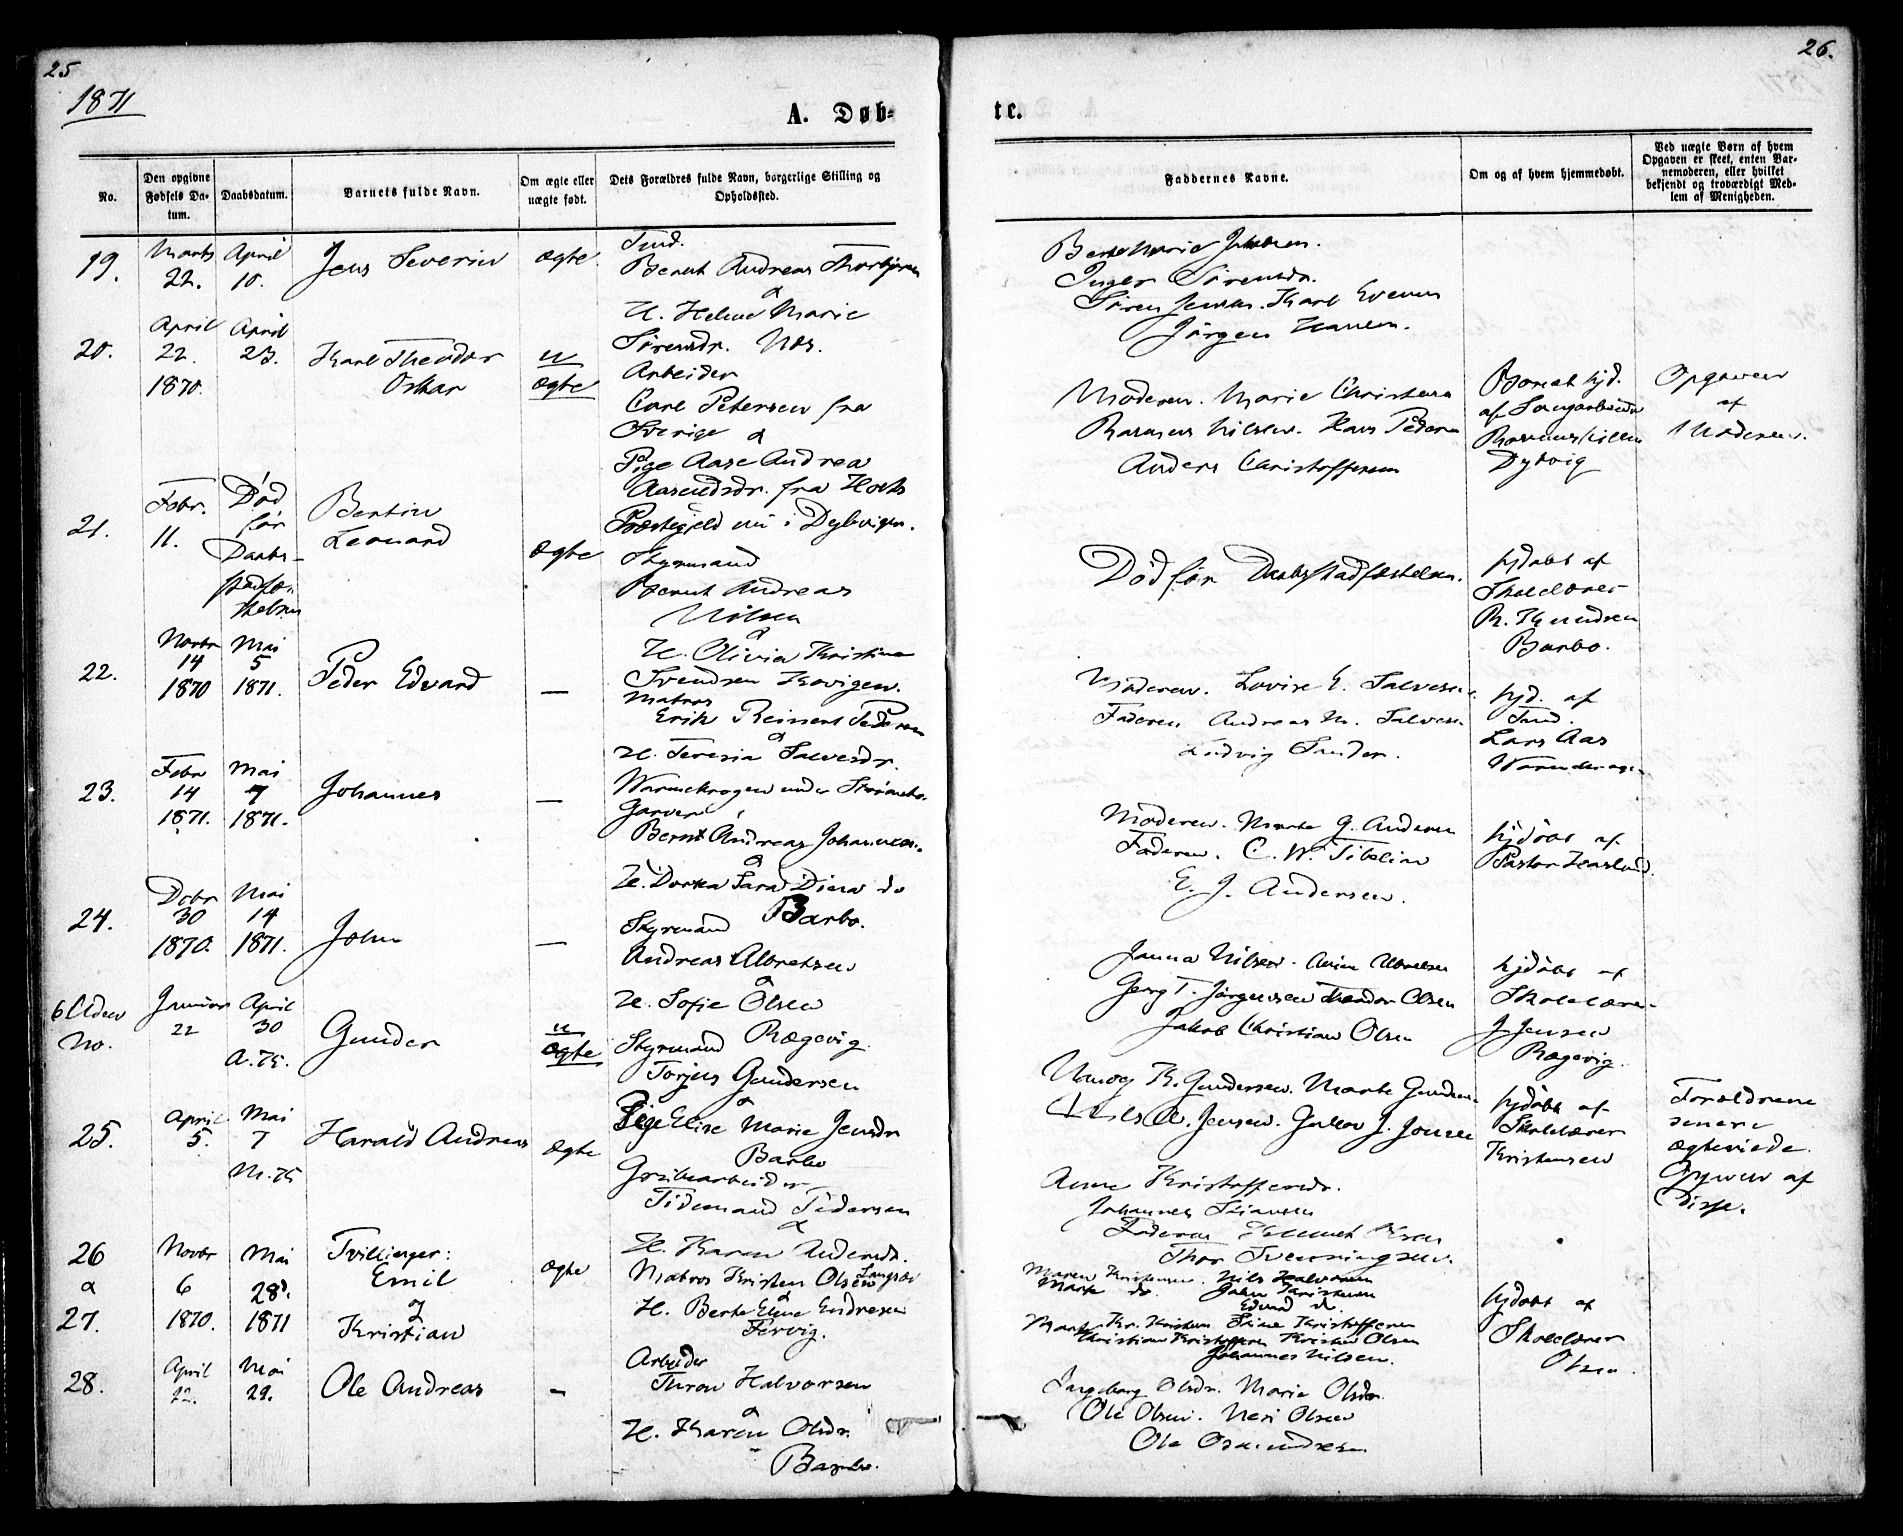 25
1871
A. Døb-
No.
Den opgivne Fødsels Datum.
Daabsdatum.
Barnets fulde Navn.
Om ægte eller uægte født.
Dets Forældres fulde Navn, borgerlige Stilling og Opholdssted.
19.
Marts
22.
April
10.
Jens Severin
ægte.
Tmd.
Bernt Andreas Thorbjørnsen
&
H. Helene Marie
Sørensdr. Næs.
20.
April
22.
1870.
April
23.
Karl Theodor
Oskar
u
ægte
Arbeider
Carl Petersen fra
Sverige &
Pige Aase Andrea
Aasendsdr. fra Holts
Præstegjeld nu i Dybvigen.
21.
Febr.
11.
Død
før
Daabs-
stadfæ-
stelsen
Bertin
Leonard
ægte
Styrmand
Bernt Andreas
Nilsen
&
H. Olivia Kristine
Svendsen Kovigen.
22.
Novbr
14
1870
Mai
5
1871.
Peder Edvard
—
Matros
Erik Reinert Pedersen
&
H. Teresia Salvesdr.
23.
Febr
14
1871.
Mai
7
1871.
Johannes
—
Garver
Bernt Andreas Johannesen.
&
H. Dorthea Sara Dina do
Barbo.
24.
Dcbr
30
1870.
Mai
14
1871.
John
—
Styrmand
Andreas Albretsen
&
H. Sofie Olsen
Rægevig.
Uden
No.
Januar
22
April
30
A.K.
Gunder
u
ægte
Styrmand
Torjus Gundersen
&
Pige Elise Marie Jensdr
Barbo
25.
April
5.
Mai
7
M.K
Harald Andreas
ægte
Grubearbeider
Tidemand Pedersen
&
H. Karen Andersdr.
26
&
27.
Novbr
6
1870.
Mai
28.
1871
Tvillinger:
Emil
og
Kristian
ægte
Matros Kristen Olsen Langsæ
&
H. Berte Eline Endresen
Tervig.
28.
April
22.
Mai
29.
Ole Andreas
—
Arbeider
Thron Halvorsen
&
H. Karen Olsdr.
Barbo.
26.
te.
Faddernes Navne.
Om og af hvem hjemmedøbt.
Ved uægte Børn af hvem
Opgaven er skeet, enten Bar-
nemoderen, eller hvilket
bekjendt og troværdigt Med-
lem af Menigheden.
Inger Sørensdr.
Søren Jensen. Karl Evensen
Jørgen Hansen.
Moderen. Marie Christensen
Rasmus Nilsen. Hans Pedersen
Anders Christoffersen
Rasmus Nilsen
Dybvig
Opgaven
af
Moderen.
Død før Daabsstadfæstelsen.
hjdøbt af
Skolelærer
R. Knudsen
Barbo.
Moderen. Lovise E. Salvesen.
Faderen Andreas M. Salvesen
Ludvig Sander.
hjd. af
Tmd.
Lars Aas
Moderen. Marte G. Andersen
Faderen. C. W. Tibelin
E. J. Andersen.
hjdøbt af
Pastor Haslund.
Janna Nilsen. Anne Albretsen
Georg T. Jørgensen Theodor Olsen
Jakob Christian Olsen
hjdøbt af
Skolelærer
J. Jensen
Rægevig.
Nancy K. Gundersen. Marte Gundersen
Nils A. Jensen.
hjdøbt af
Skolelærer
Kristensen
Forældrene
senere
ægteviede.
Opgaven af
disse.
Anne Kristoffersdr.
Johannes Stiansen
Thor Svenningsen.
Maren Kristensen. Nils Halvorsen
Marte do. John Kristensen
Edvard do.
Marte Kr. Kristensen Stine Kristoffersen
Christian Kristoffersen Kristen Olsen
Johannes Nilsen.
hjdøbt af
Skolelærer
Olsen.
Ingeborg Olsdr. Marie Olsdr.
Ole Olsen. Neri Olsen
Ole Osmundsen